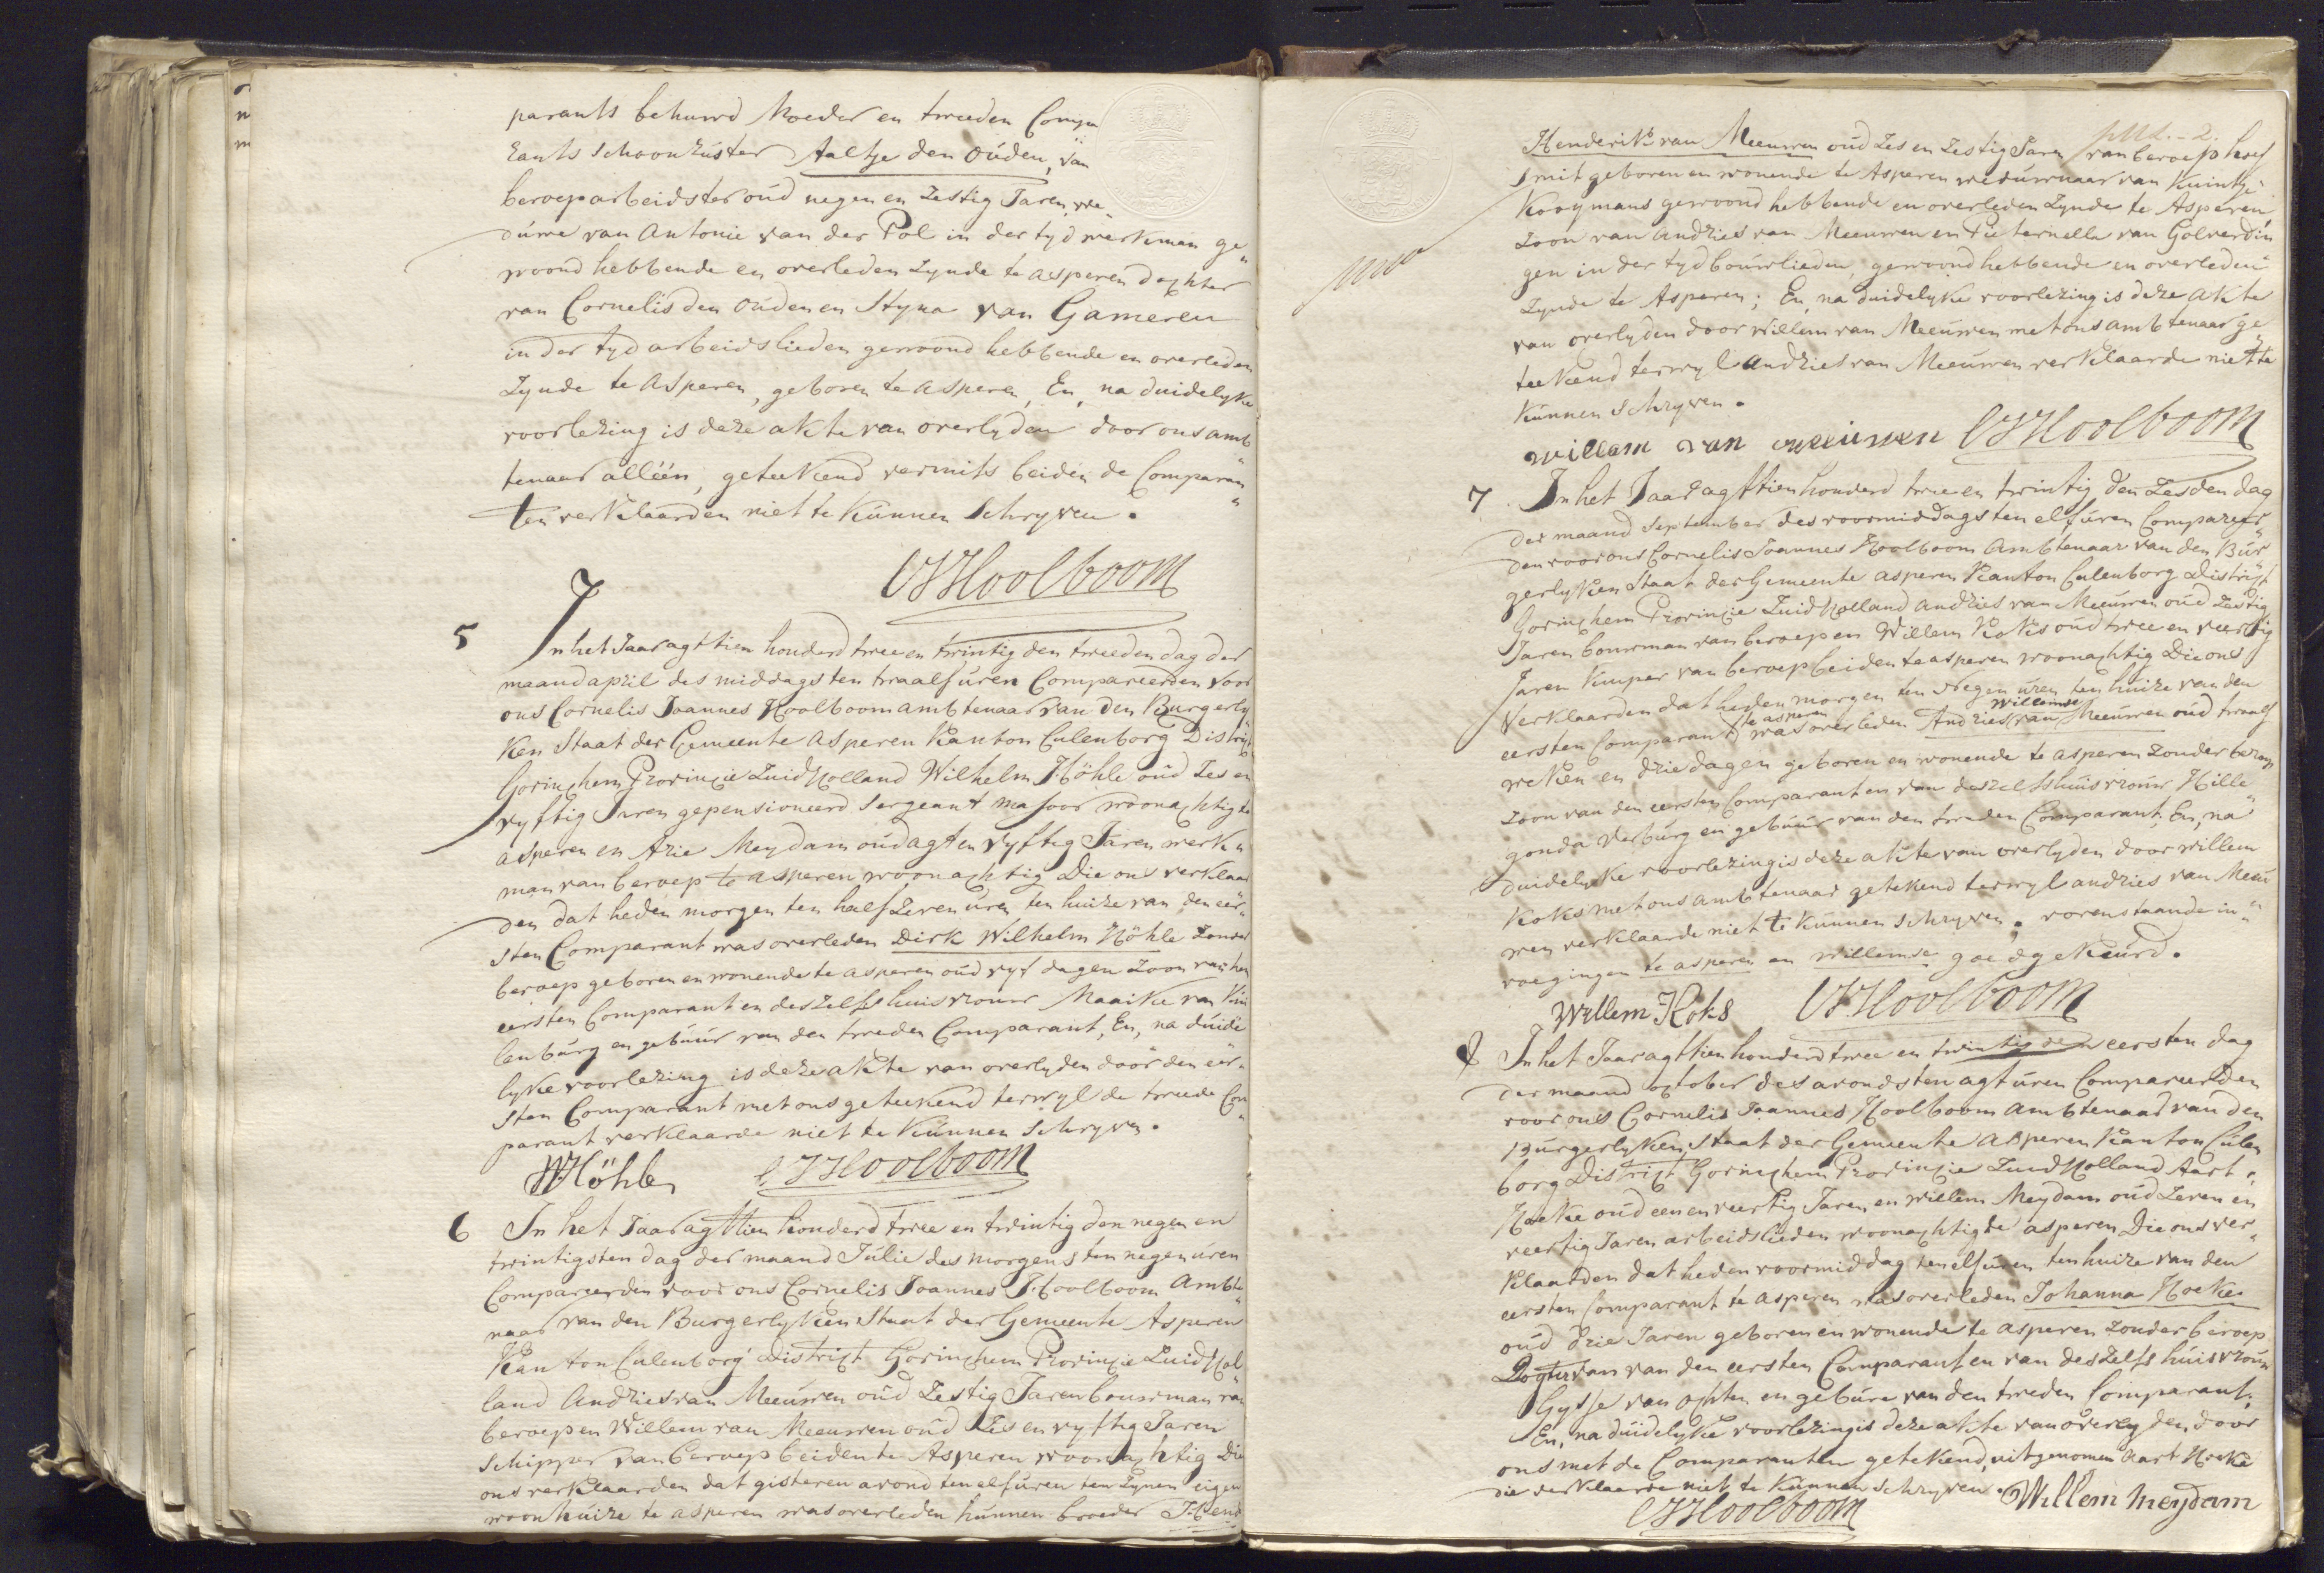 parants behuwd Moeder en tweeden Compa
rants Schoonzúster Aaltje den oúden, van
beroep arbeidster oúd negen en Zestig Jaren we„
dúwe van Antonie van der Pol in der tyd werkman ge„
woond hebbende en overleden Zynde te asperen dochter
van Cornelis den oúden en Styna van Gameren
in der tyd arbeidslieden gewoond hebbende en overleden
Zynde te Asperen, geboren te asperen, En, na duidelyke
voorlezing is deze akte van overlyden door ons amb„
tenaar alléén, geteekend vermits beiden de Comparan„
ten verklaarden niet te kúnnen Schryven.
CJHoolboom
5
In het Jaar agttien honderd twee en twintig den tweeden dag der
maand april des middags ten twaalf úren Compareerden voor
ons Cornelis Joannes Hoolboom ambtenaar van den Burgerly„
ken Staat der Gemeente Asperen Kanton Culenborg District
Gorinchem Provincie Zuid Holland Wilhelm Höhle oúd Zes en
vyftig Jaren gepensioneerd Sergeant majoor woonachtig te
asperen en Arie Meydam oúd agt en vyftig Jaren werk„
man van beroep te asperen woonachtig Die ons verklaar
den dat heden morgen ten half Zeven úren ten huize van den eer„
sten Comparant was overleden Dirk Wilhelm Höhle Zonder
beroep geboren en wonende te asperen oúd vyf dagen Zoon van den
eersten Comparant en deszelfs huisvrouw Maaike van Kúi
lenbúrg en gebúúr van den tweeden Comparant, En, na dúide
lyke voorlezing is deze akte van overlyden door den eer„
sten Comparant met ons geteekend terwyl de tweede Com„
parant verklaarde niet te kúnnen Schryven.
WHöhle CJHoolboom
6 In het Jaar agttien honderd twee en twintig den negen en
twintigsten dag der maand Júlie des morgens ten negen úren
Compareerden voor ons Cornelis Joannes Hoolboom Ambte„
naar van den Burgerlyken Staat der Gemeente Asperen
Kanton Culenborg District Gorinchem Provincie Zuid Hol„
land Andries van Meeuwen oúd Zestig Jaren bouwman van
beroep en Willem van Meeuwen oúd Zes en vyftig Jaren
Schipper van beroep beiden te Asperen woonachtig Die
ons verklaarden dat gisteren avond ten elf úren ten Zynen eigen
woonhúize te asperen was overleden húnnen broeder Hend
Henderik van Meeuwen oúd Zes en Zestig Jaren van beroep hoef
Smit geboren en wonende te Asperen wedúwnaar van Kuintje
Kooymans gewoond hebbende en overleden Zynde te Asperen
Zoon van Andries van Meeuwen en Pieternella van Golverdin
gen in der tyd boúwlieden, gewoond hebbende en overleden
Zynde te Asperen; En, na duidelyke voorlezing is deze akte
van overlyden door Willem van Meeúwen met ons ambtenaar ge„
teekend terwyl Andries van Meeúwen verklaarde niet te
kúnnen Schryven.
willem van meeúwen CJHoolboom
7 In het Jaar agttien honderd twee en twintig den Zesden dag
der maand September des voormiddags ten elf úren Compareer„
den voor ons Cornelis Joannes Hoolboom Ambtenaar van den Búr„
gerlyken Staat der Gemeente asperen Kanton Culenborg District
Gorinchem Provincie Zuid Holland Andries van Meeúwen oúd Zestig
Jaren boúwman van beroep en Willem Koks oúd twee en veertig
Jaren Kuiper van beroep beiden te asperen woonachtig Die ons
Verklaarden dat heden morgen ten Negen úren ten huize van den
te asperen willemse
eersten Comparant was overleden Andries van Meeuwen oúd twaalf
weken en drie dagen geboren en wonende te asperen Zonder beroep
Zoon van den eersten Comparant en van deszelfs huisvrouw Hille„
gonda Verbúrg en gebúúr van den tweeden Comparant, En, na
duidelyke voorlezing is deze akte van overlyden door willem
Koks met ons ambtenaar getekend terwyl andries van Meeú
wen verklaarde niet te kúnnen Schryven. vorenstaande in„
voegingen te asperen en willemse goedgekeúrd.
Willem Koks CJHoolboom
8 In het Jaar agttien honderd twee en twintig den eersten dag
der maand october des avonds ten agt úren Compareerden
voor ons Cornelis Joannes Hoolboom Ambtenaar van den
Búrgerlyken Staat der Gemeente Asperen Kanton Cúlen
borg District Gorinchem Provincie Zuid Holland Aart
Hoeke oúd een en veertig Jaren, en willem Meydam oúd Zeven en
veertig Jaren arbeidslieden woonachtig te asperen Die ons ver„
klaarden dat heden voormiddag ten elf úren ten huize van den
eersten Comparant te asperen was overleden Johanna Hoeke
oúd drie Jaren geboren en wonende te asperen Zonder beroep
Dogter van van den eersten Comparant en van deszelfs húisvroúw
Gysje van ochten en gebúre van den tweden Comparant.
En, na duidelyke voorlezing is deze akte van overlyden, door
ons met de Comparanten getekend, uitgenomen Aart Hoeke
die verklaarde niet te kúnnen schryven. Willem meydam
CJHoolboom